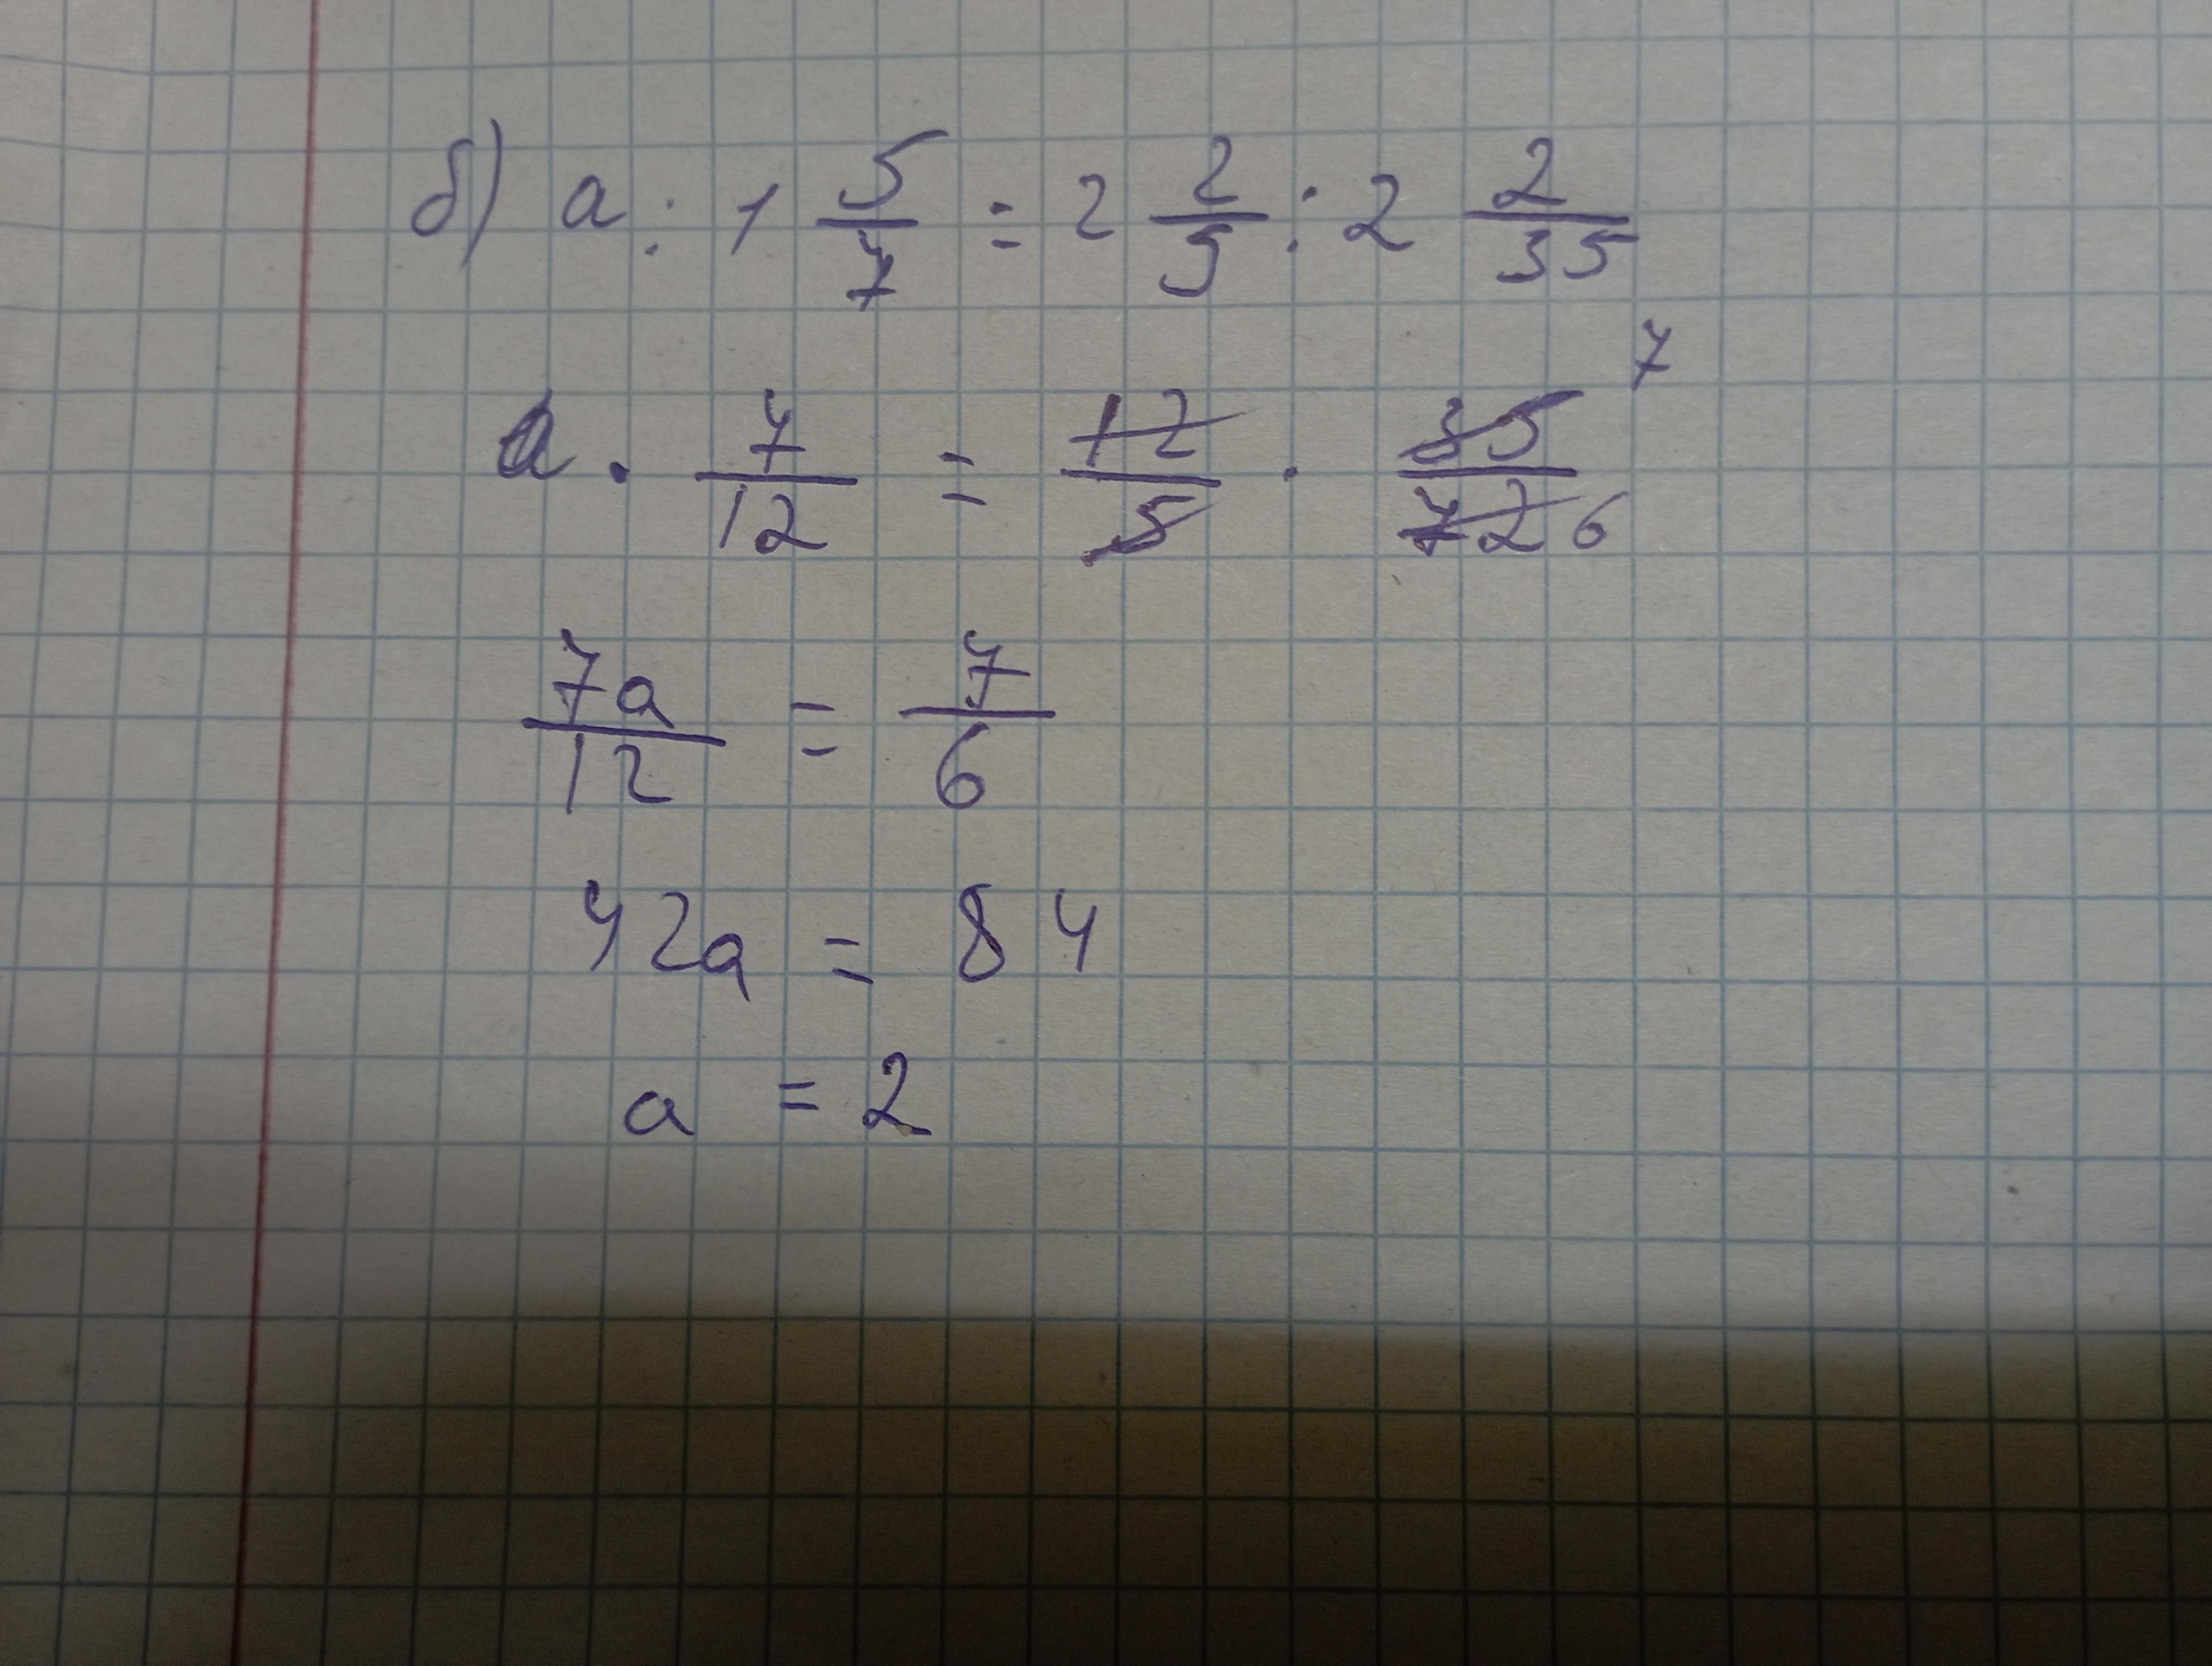 б) a : 1 5/7 = 2 2/5 : 2 2/35
a · 7/12 = 12/5 · 35/72 7 6
7a/12 = 7/6
42a = 84
a = 2